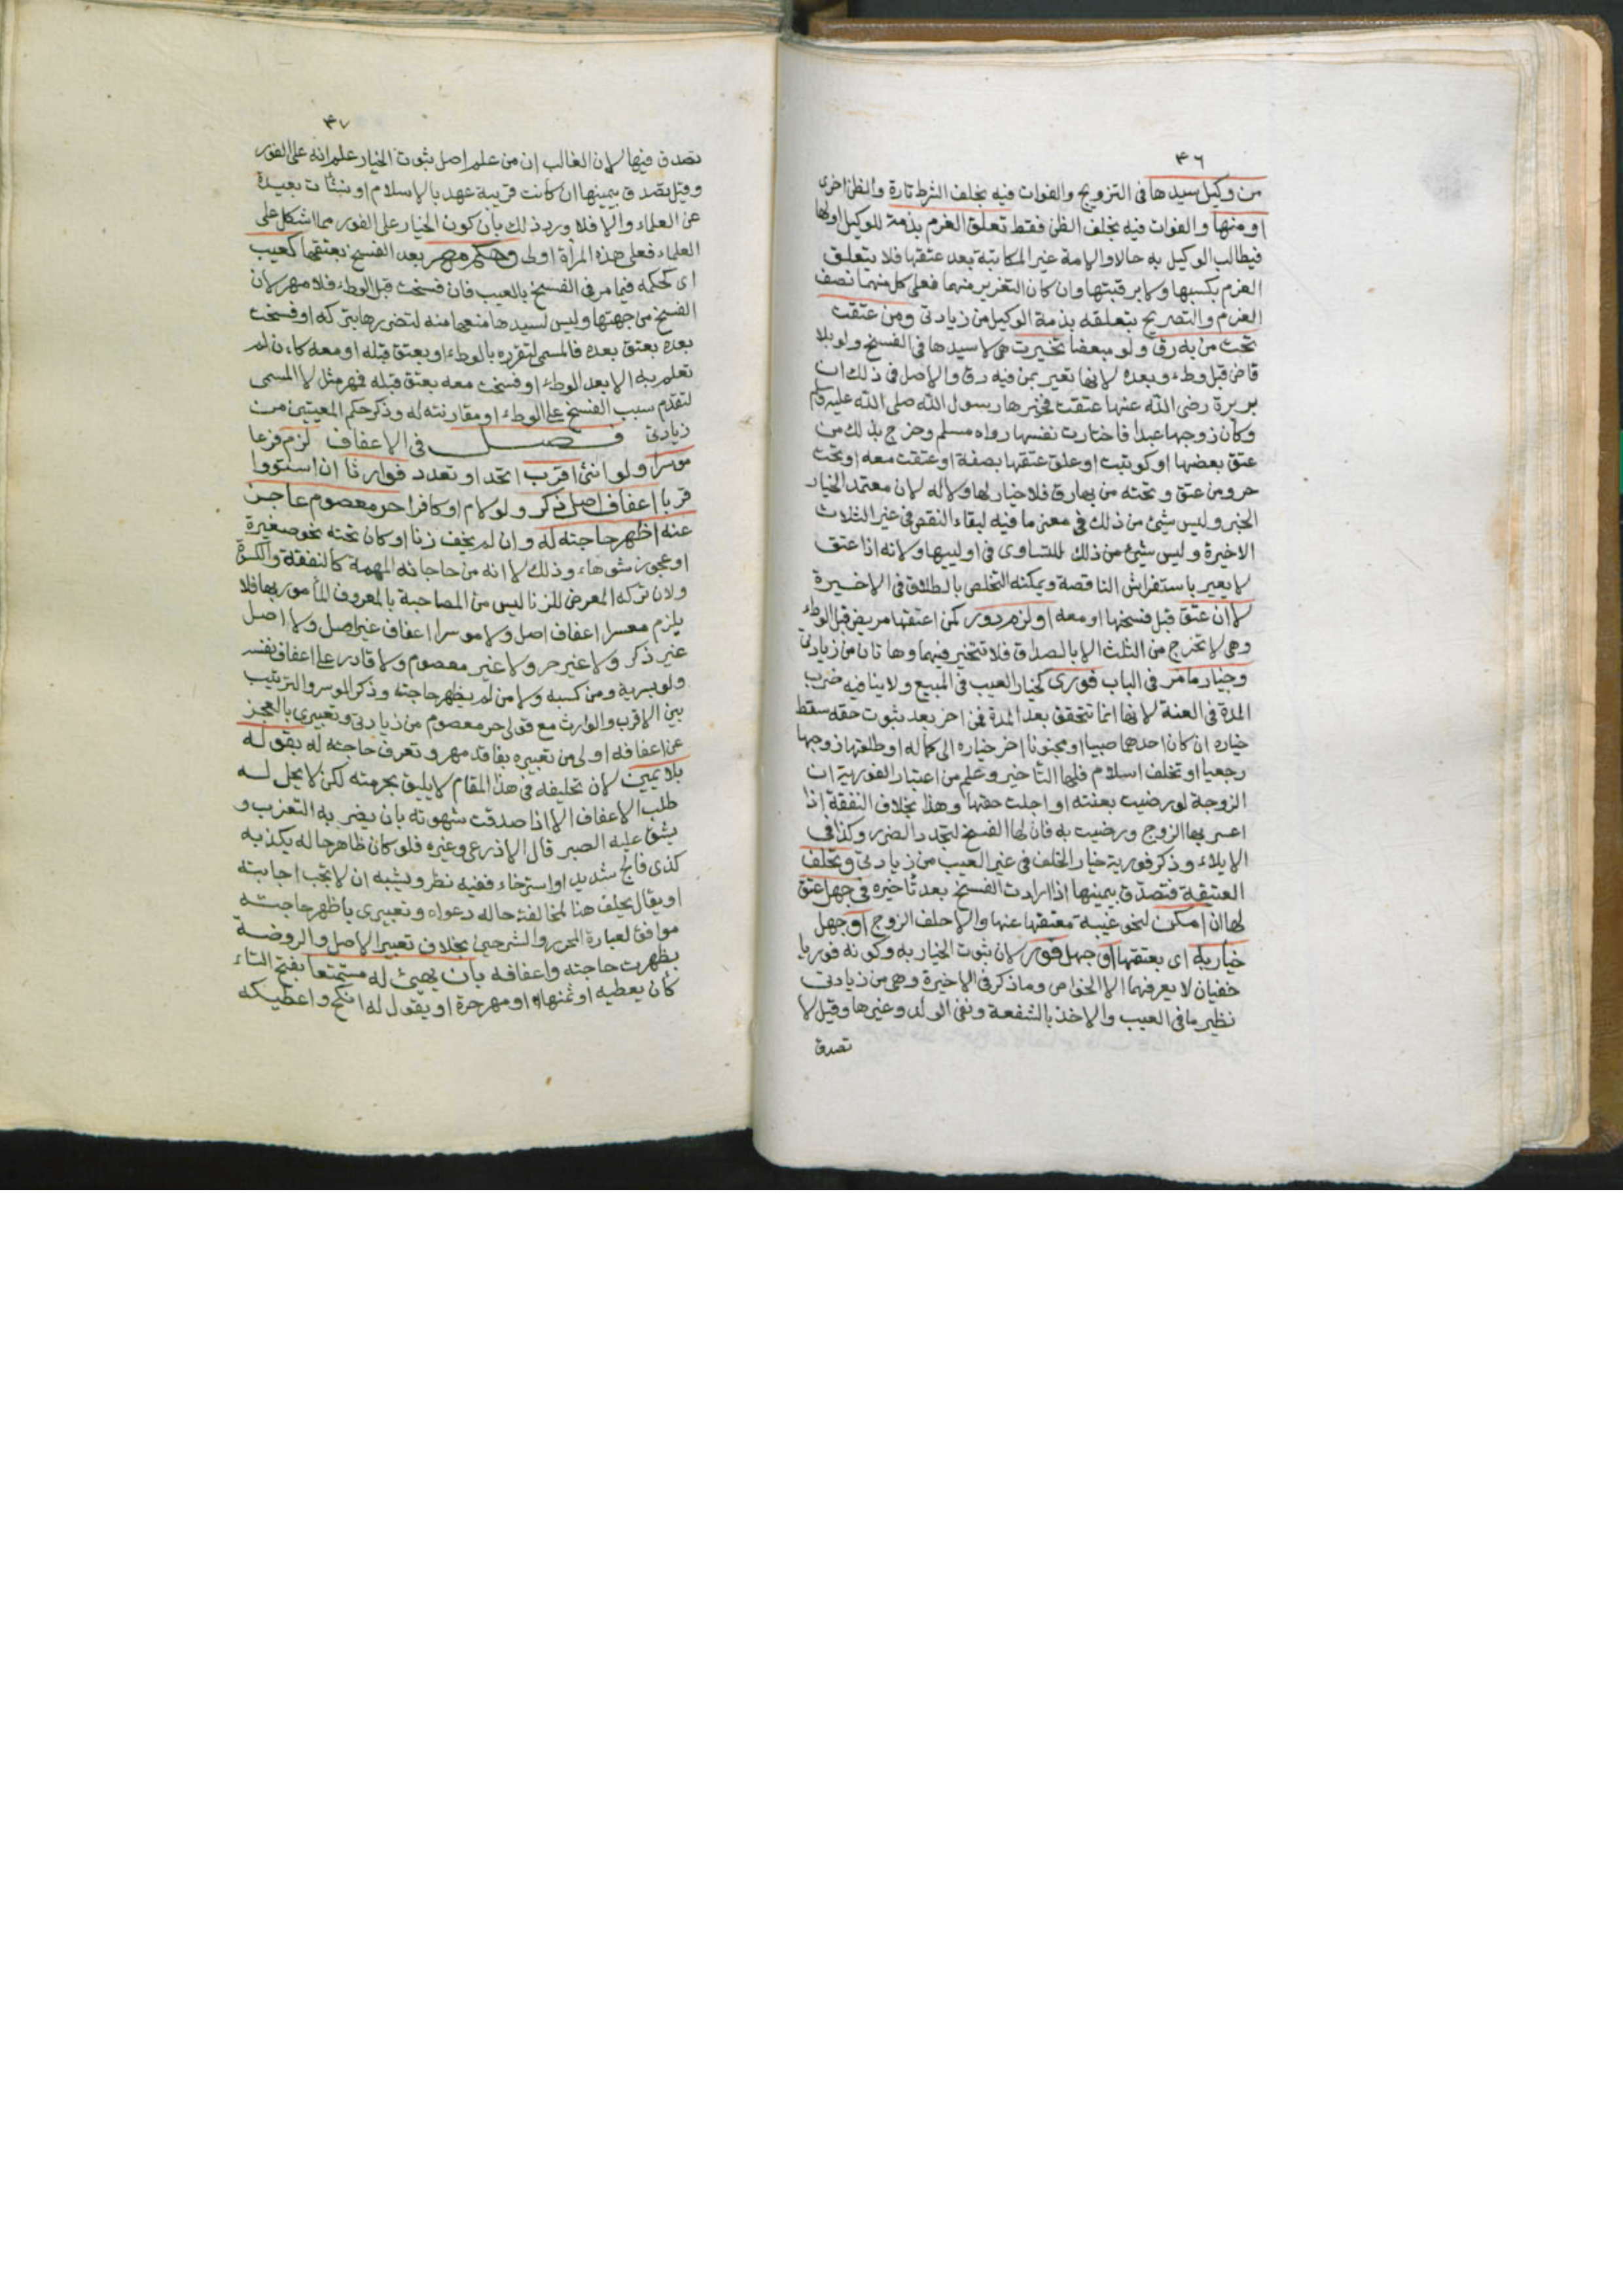 ٤٦
من وكيل سيدها فى التزويج والفوات فيه بخلف الشرط تارة والظن اخرى
او منها والفوات فيه بخلف الظن فقط تعلق الغرم بذمة للوكيل اولها
فيطالب الوكيل به حالا والامة غير المكاتبة بعد عتقها فلا يتعلق
الغرم بكسبها ولا برقبتها وان كان التغرير منهما فعلى كل منهما نصف
الغرم والتصريح بتعلقه بذمة الوكيل من زيادتى ومن عتقت
تحت من به رق ولو مبعضا تخيرت هى لا سيدها فى الفسخ ولو بلا
قاض قبل وطء وبعده لانها تعير بمن فيه رق والاصل فى ذلك ان
بريرة رضى الله عنها عتقت فخيرها رسول الله صلى الله عليه وسلم
وكان زوجها عبدا فاختارت نفسها رواه مسلم وخرج بذلك من
عتق بعضها او كوتبت او علق عتقها بصفة او عتقت معه او تحت
حر ومن عتق وتحته من بها رق فلا خيار لها ولا له لان معتمد الخيار
الخبر وليس شئ من ذلك فى معنى ما فيه لبقاء النقص فى غير الثلاث
الاخيرة وليس شئ من ذلك للتساوى فى اولييها ولانه اذا عتق
لا يعير باستفراش الناقصة ويمكنه التخلص بالطلاق فى الاخيرة
لا ان عتق قبل فسخها او معه او لزم دور كمن اعتقها مريض قبل الوطء
وهى لا تخرج من الثلث الا بالصداق فلا تتخير فيهما وهاتان من زيادتى
وخيار ما مر فى الباب فورى كخيار العيب فى المبيع ولا ينافيه ضرب
المدة فى العنة لانها انما تتحقق بعد المدة فمن اخر بعد ثبوت حقه سقط
خياره ان كان احدهما صبيا او مجنونا اخر خياره الى كماله او طلقها زوجها
رجعيا او تخلف اسلام فلها التاخير وعلم من اعتبار الفورية ان
الزوجة لو رضيت بعنته او اجلت حقها وهذا بخلاف النفقة اذا
اعسر بها الزوج ورضيت به فان لها الفسخ لتجدد الضرر وكذا فى
الايلاء وذكر فورية خيار الخلف فى غير العيب من زيادتى وتحلف
العتيقة فتصدق بيمينها اذا ارادت الفسخ بعد تأخيره فى جهل عتق
لها ان امكن لنحو غيبة معتقها عنها والا حلف الزوج او جهل
خيار به اى بعتقها او جهل فور لان ثبوت الخيار به وكونه فوريا
خفيان لا يعرفهما الا الخواص وما ذكر فى الاخيرة وهى من زيادتى
نظير ما فى العيب والاخذ بالشفعة ونفى الولد وغيرها وقيل لا
تصدق
٤٧
تصدق فيها لان الغالب ان من علم اصل ثبوت الخيار علم انه على الفور
وقيل تصدق بيمينها ان كانت قريبة عهد بالاسلام او نشأت بعيدة
عن العلماء والا فلا ورد ذلك بان كون الخيار على الفور مما اشكل على
العلماء فعلى هذه المرأة اولى وحكم مهر بعد الفسخ بعتقها كعيب
اى كحكمه فيما مر فى الفسخ بالعيب فان فسخت قبل الوطء فلا مهر لان
الفسخ من جهتها وليس لسيدها منعها منه لتضررها بتركه او فسخت
بعده بعتق بعده فالمسمى لتقرره بالوطء او بعتق قبله او معه كان لم
تعلم به الا بعد الوطء او فسخت معه بعتق قبله فمهر مثل لا المسمى
لتقدم سبب الفسخ على الوطء او مقارنته له وذكر حكم المعيتين من
زيادتى فصل فى الاعفاف لزم فرعا
موسرا ولو انثى اقرب اتحد او تعدد فوارثا ان استووا
قربا اعفاف اصل ذكر ولو لام او كافرا حر معصوم عاجز
عنه اظهر حاجته له وان لم يخف زنا او كان تحته نحو صغيرة
او عجوز شوهاء وذلك لانه من حاجاته المهمة كالنفقة والكسوة
ولان تركه المعرض للزنا ليس من المصاحبة بالمعروف المأمور بها فلا
يلزم معسرا اعفاف اصل ولا موسرا اعفاف غير اصل ولا اصل
غير ذكر ولا غير حر ولا غير معصوم ولا قادر على اعفاف نفسه
ولو بسرية ومن كسبه ولا من لم يظهر حاجته وذكر الموسر والترتيب
بين الاقرب والوارث مع قولى حر معصوم من زيادتى وتعبيرى بالعجز
عن اعفافه اولى من تعبيره بفاقد مهر وتعرف حاجته له بقوله
بلا يمين لان تحليفه فى هذا المقام لا يليق بحرمته لكن لا يحل له
طلب الاعفاف الا اذا صدقت شهوته بان يضر به التعزب و
يشق عليه الصبر قال الاذرعى وغيره فلو كان ظاهر حاله يكذبه
كذى فالج شديد او استرخاء ففيه نظر ويشبه ان لا تجب اجابته
او يقال يحلف هنا لمخالفة حاله دعواه وتعبيرى باظهر حاجته
موافق لعبارة المحرر والشرحين بخلاف تعبير الاصل والروضة
بظهرت حاجته واعفافه بان يهيئ له مستمتعا بفتح التاء
كأن يعطيه او ثمنها او مهر حرة او يقول له انكح واعطيكه